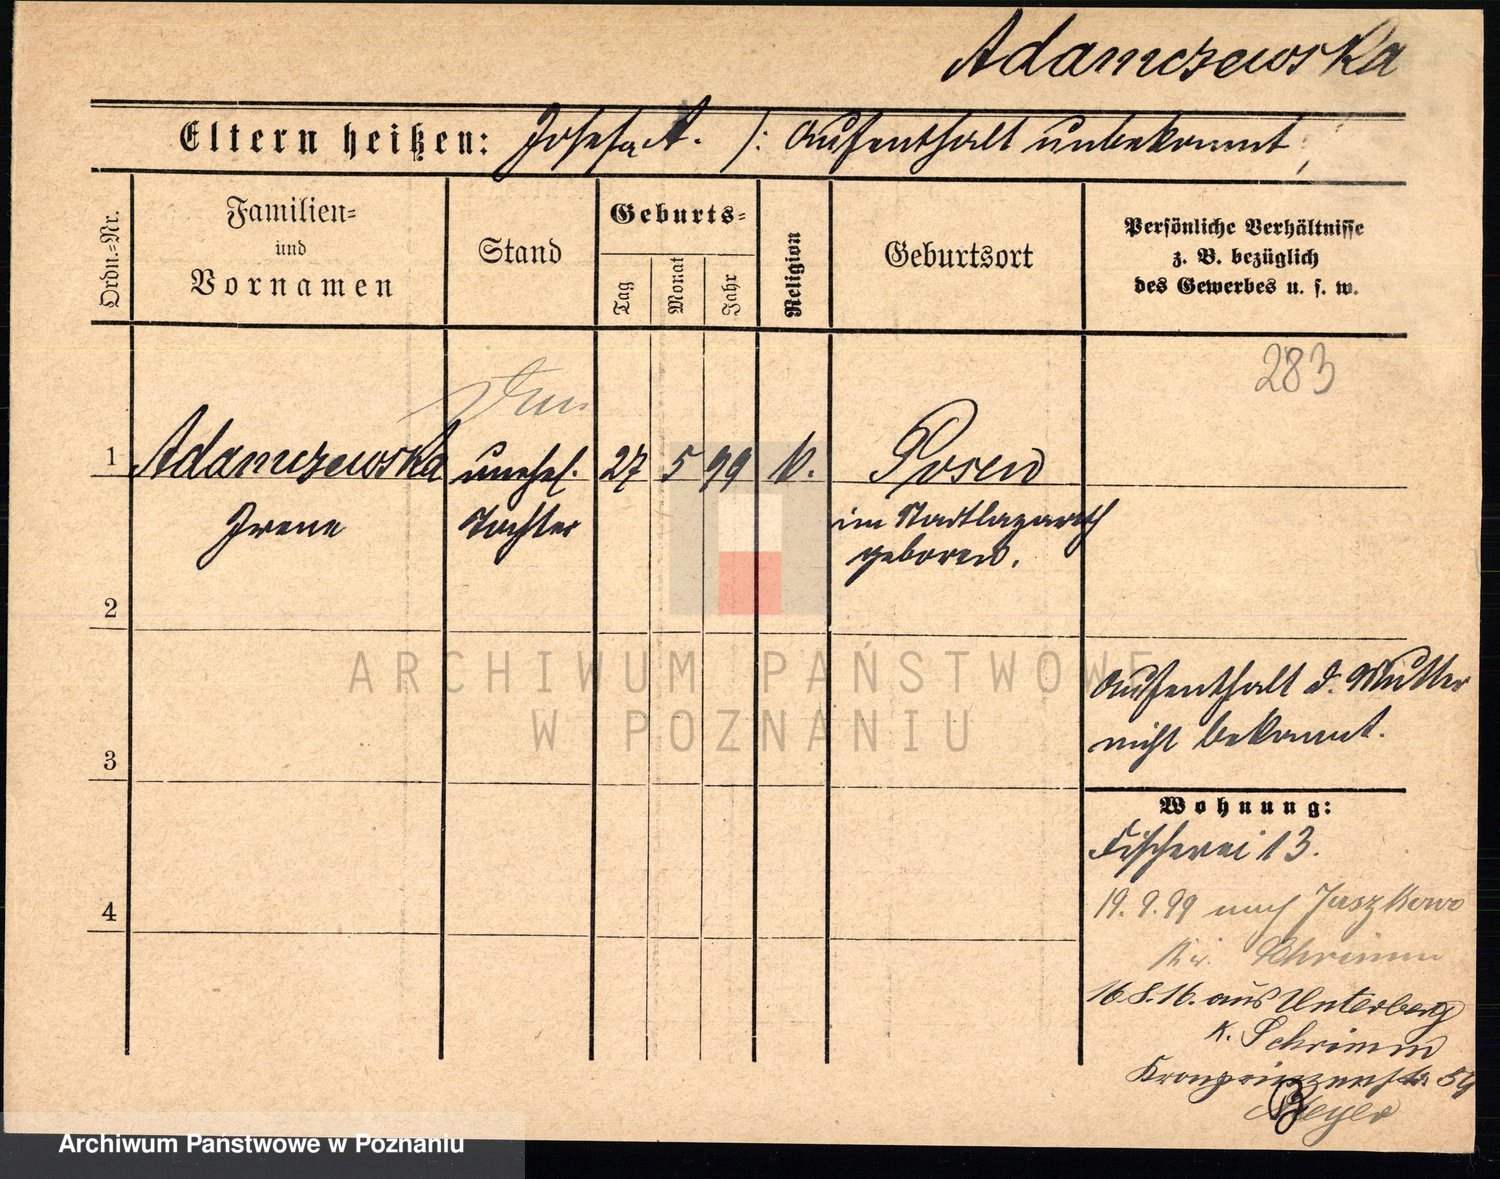 Adamczewska
Eltern heißen: Josefa A. /: Aufenthalt unbekannt
Ordn.=Nr.
Familien=
und
Vornamen
Stand
Geburts=
Tag
Monat
Jahr
Religion
Geburtsort
Persönliche Verhältnisse
z. B. bezüglich
des Gewerbes u. s. w.
283
1 Adamczewska unehel. 27 5 99 k. Posen
Irene Tochter im Stadtlazareth
geboren.
2
Aufenthalt d. Mutter
nicht bekannt.
3
Wohnung:
Fischerei 13.
4
19. 9. 99 nach Jaszkowo
Kr. Schrimm
16. 8. 16. aus Unterberg
K. Schrimm
Kronprinzenstr. 59
Meyer
ARCHIWUM PAŃSTWOWE
W POZNANIU
Archiwum Państwowe w Poznaniu